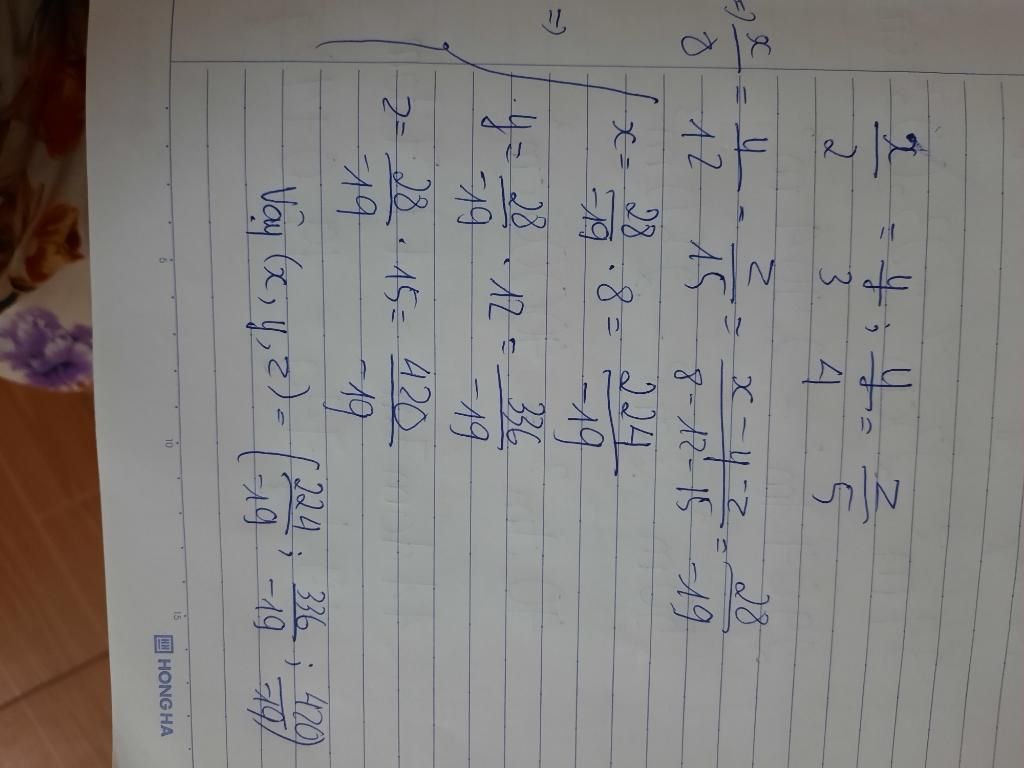 x/2 = y/3 ; y/4 = z/5
=> x/8 = y/12 = z/15 = x-y-z/8-12-15 = 28/-19
=> x = 28/-19 . 8 = 224/-19
y = 28/-19 . 12 = 336/-19
z = 28/-19 . 15 = 420/-19
Vậy (x, y, z) = (224/-19 ; 336/-19 ; 420/-19)
5 10 15
HONG HA